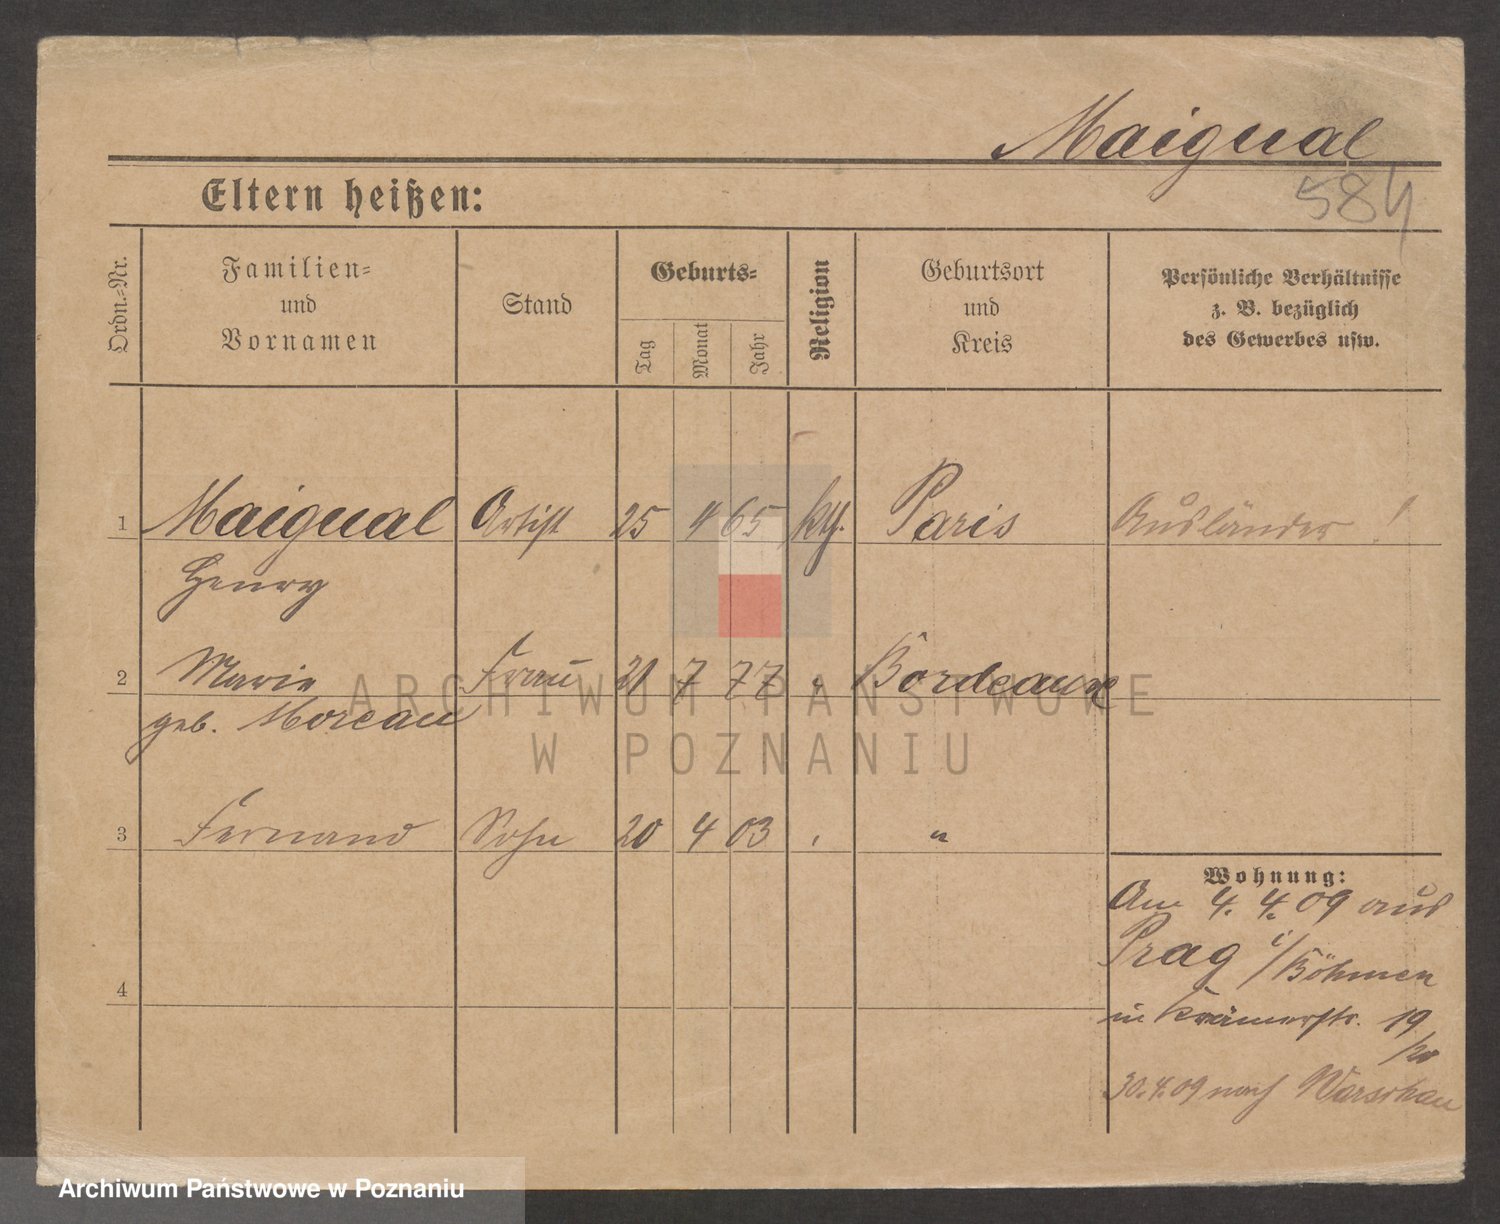 Maigual
584
Eltern heißen:
Ordn.-Nr.
Familien-
und
Vornamen
Stand
Geburts-
Tag
Monat
Jahr
Religion
Geburtsort
und
Kreis
Persönliche Verhältnisse
z. B. bezüglich
des Gewerbes usw.
1 Maigual Artist 25 4 65 kth. Paris Ausländer !
Henry
2 Marie Frau 21 7 77 " Bordeaux
geb. Moreau
3 Fernand Sohn 20 4 03 " "
4
Wohnung:
Am 4. 4. 09 aus
Prag i/Böhmen
in Krämerstr. 19
/20
30.4.09 nach Warschau
ARCHIWUM PAŃSTWOWE
W POZNANIU
Archiwum Państwowe w Poznaniu